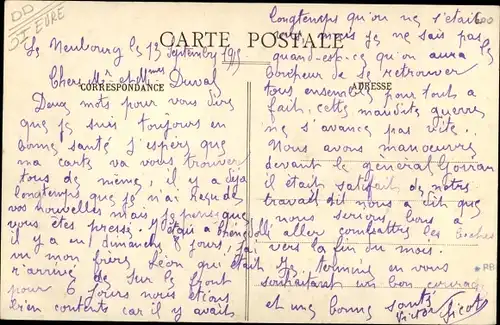 DD
27 EURE
600
CARTE POSTALE
CORRESPONDANCE
ADRESSE
Le Neubourg le 13 Septembre 1915
Chers Mr et Mmes Duval
Deux mots pour vous dire
que je suis toujours en
bonne santé j'espère que
ma carte va vous trouver
tous de même, il y a déjà
longtemps que je n'ai reçu de
vos nouvelles mais je pense que
vous êtes pressé. J'étais a
il y a eu dimanche 8 jours, j'ai
vu mon frère Léon qui était
r'arrivé de sur le front
pour 6 jours nous étions
bien contents car il y avait
longtemps qu'on ne s'était
vus mais je ne sais pas
quand-est-ce qu'on aura
le bonheur de se retrouver
tous ensemble pour tout a
fait, cette maudite guerre
ne s'avance pas vite.
Nous avons manoeuvré
devant le général Goiran
il était satisfait de notre
travail dit nous a dit que
nous serions bons a
aller combattre les boches
vers la fin du mois.
Je termine en vous
souhaitant un bon courage
et une bonne santé
Victor Picot
*PB